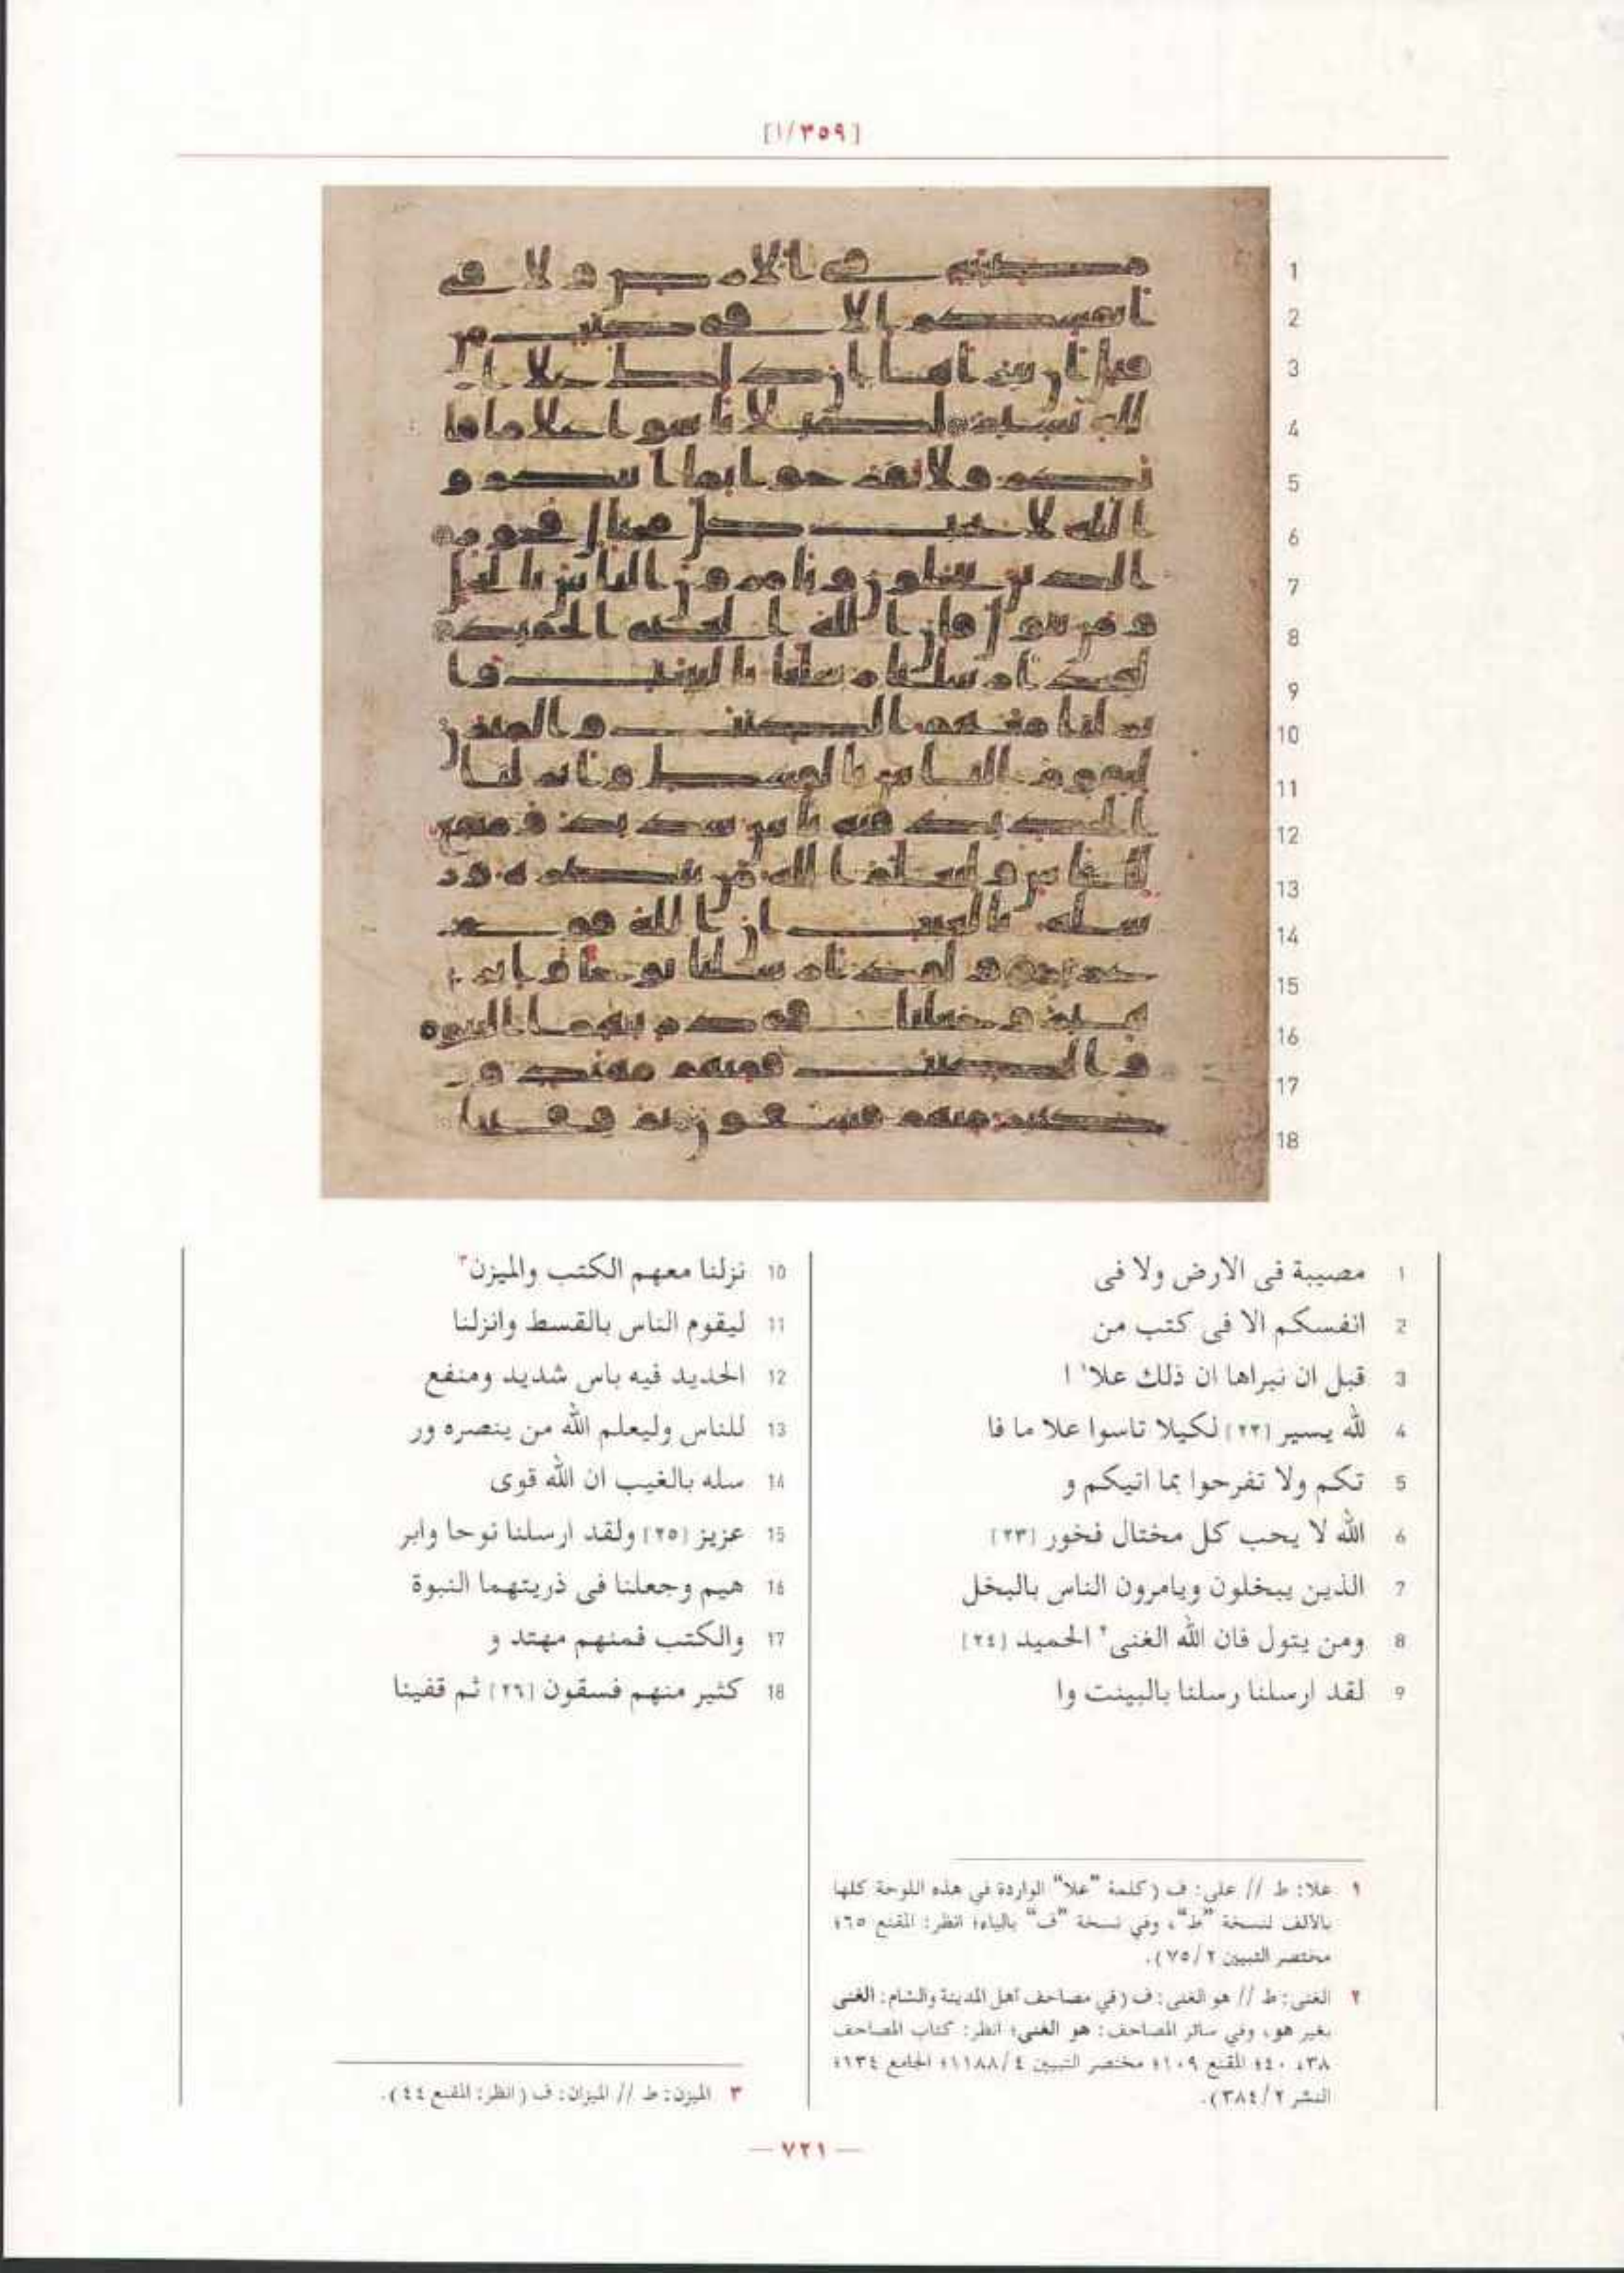 [٣٥٩/١]
1 مصيبة فى الارض ولا فى
2 انفسكم الا فى كتب من
3 قبل ان نبراها ان ذلك علا١ ا
4 لله يسير [٢٢] لكيلا تاسوا علا ما فا
5 تكم ولا تفرحوا بما اتيكم و
6 الله لا يحب كل مختال فخور [٢٣]
7 الذين يبخلون ويامرون الناس بالبخل
8 ومن يتول فان الله الغنى٢ الحميد [٢٤]
9 لقد ارسلنا رسلنا بالبينت وا
10 نزلنا معهم الكتب والميزن٣
11 ليقوم الناس بالقسط وانزلنا
12 الحديد فيه باس شديد ومنفع
13 للناس وليعلم الله من ينصره ور
14 سله بالغيب ان الله قوى
15 عزيز [٢٥] ولقد ارسلنا نوحا وابر
16 هيم وجعلنا فى ذريتهما النبوة
17 والكتب فمنهم مهتد و
18 كثير منهم فسقون [٢٦] ثم قفينا
١ علا: ط // على: ف (كلمة "علا" الواردة في هذه اللوحة كلها
بالالف لنسخة "ط"، وفي نسخة "ف" بالياء؛ انظر: المقنع ٦٥؛
مختصر التبيين ٧٥/٢).
٢ الغنى: ط // هو الغنى: ف (في مصاحف اهل المدينة والشام: الغنى
بغير هو، وفي سائر المصاحف: هو الغنى؛ انظر: كتاب المصاحف
٣٨، ٤٠؛ المقنع ١٠٩؛ مختصر التبيين ١١٨٨/٤؛ الجامع ١٣٤؛
النشر ٣٨٤/٢).
٣ الميزن: ط // الميزان: ف (انظر: المقنع ٤٤).
— ٧٢١ —